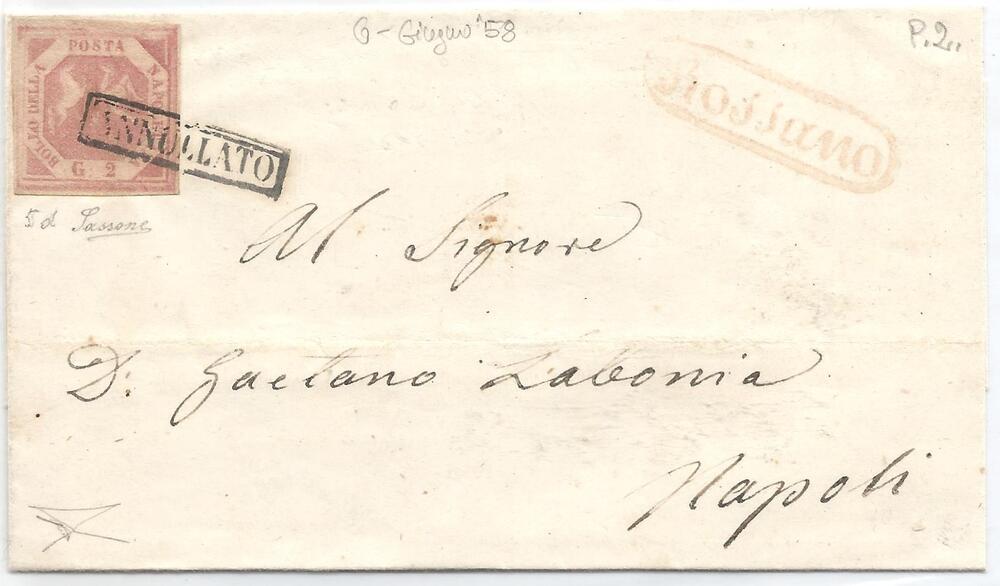 6 - Giugno '58
P. 2..
POSTA
BOLLO DELLA
NAPOLETANA
G. 2
ANNULLATO
Rossano
5 d Sassone
Al Signore
D: Gaetano Labonia
Napoli